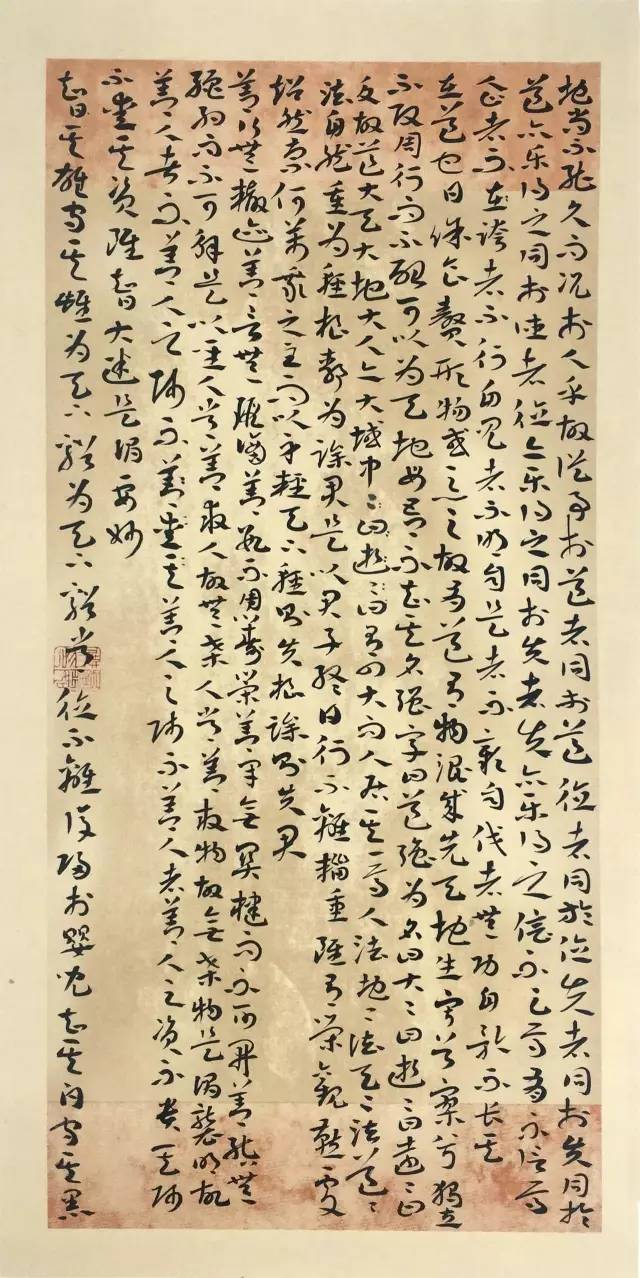 地尚不能久而況於人乎故從事於道者同於道德者同於德失者同於失同於
道亦樂得之同於德者德亦樂得之同於失者失亦樂得之信不足焉有不信焉
企者不立跨者不行自見者不明自是者不彰自伐者無功自矜不長其
在道也曰餘食贅形物或惡之故有道有物混成先天地生寂兮寥兮獨立
不改周行而不殆可以為天地母吾不知其名強字曰道強為名曰大〻曰逝〻曰遠〻曰
反故道大天大地大人亦大域中〻曰逝〻曰有四大而人居其一焉人法地〻法天〻法道〻
法自然重為輕根靜為躁君是以君子終日行不離輜重雖有榮觀燕處
超然奈何萬乘之主而以身輕天下輕則失根躁則失君
善行無轍迹善言無瑕讁善數不用籌策善閉無關楗而不可開善結無
繩約而不可解是以聖人常善救人故無棄人常善救物故無棄物是謂襲明故
善人者不善人之師不愛其善人之師不善人者善人之資不貴其師
不愛其資雖智大迷是謂要妙
知其雄守其雌為天下谿為天下谿常德不離復歸於嬰兒知其白守其黑